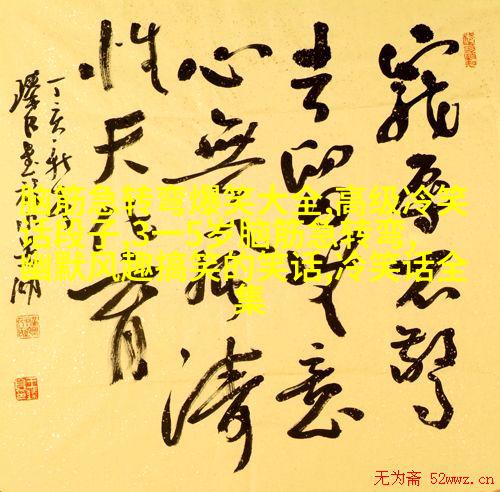 寵辱不驚
去留無意
心無風濤
性天化育
丁亥
脑筋急转弯爆笑大全,高级冷笑
话段子,3一5岁脑筋急转弯,
幽默风趣搞笑的笑话,冷笑话全
集
无为斋 52wwz.cn